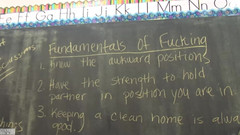 Ff Gg Mm Nn O
Fundamentals of Fucking
1. Know the awkward positions
2. Have the strength to hold
partner in position you are in
3. Keeping a clean home is alwa
good.)